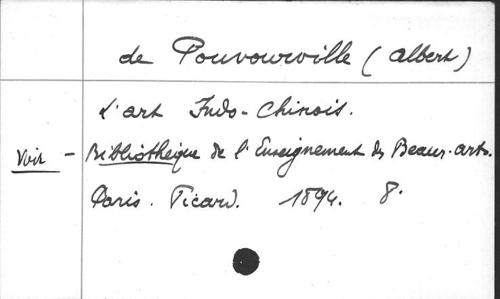 de Pouvourville (Albert)
L'art Indo-Chinois.
Voir - Bibliothèque de l'Enseignement des Beaux-arts.
Paris. Picard. 1894. 8.